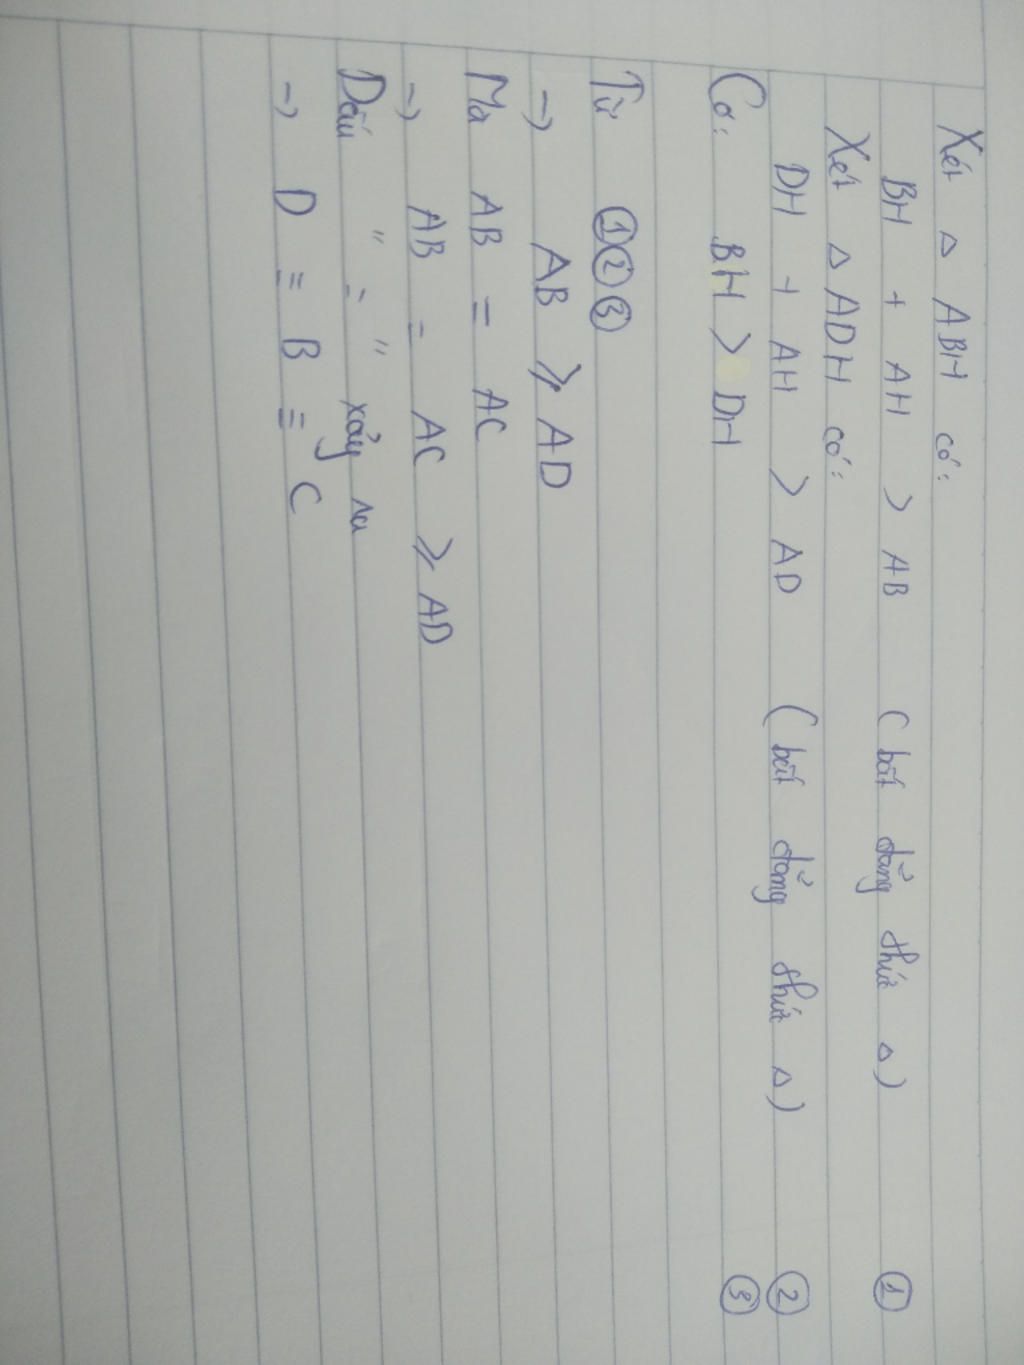 Xét △ ABH có:
BH + AH > AB (bất đẳng thức △) ①
Xét △ ADH có:
DH + AH > AD (bất đẳng thức △) ②
Có: BH > DH ③
Từ ①②③
→ AB ⩾ AD
Mà AB = AC
→ AB = AC ⩾ AD
Dấu " = " xảy ra
→ D ≡ B ≡ C